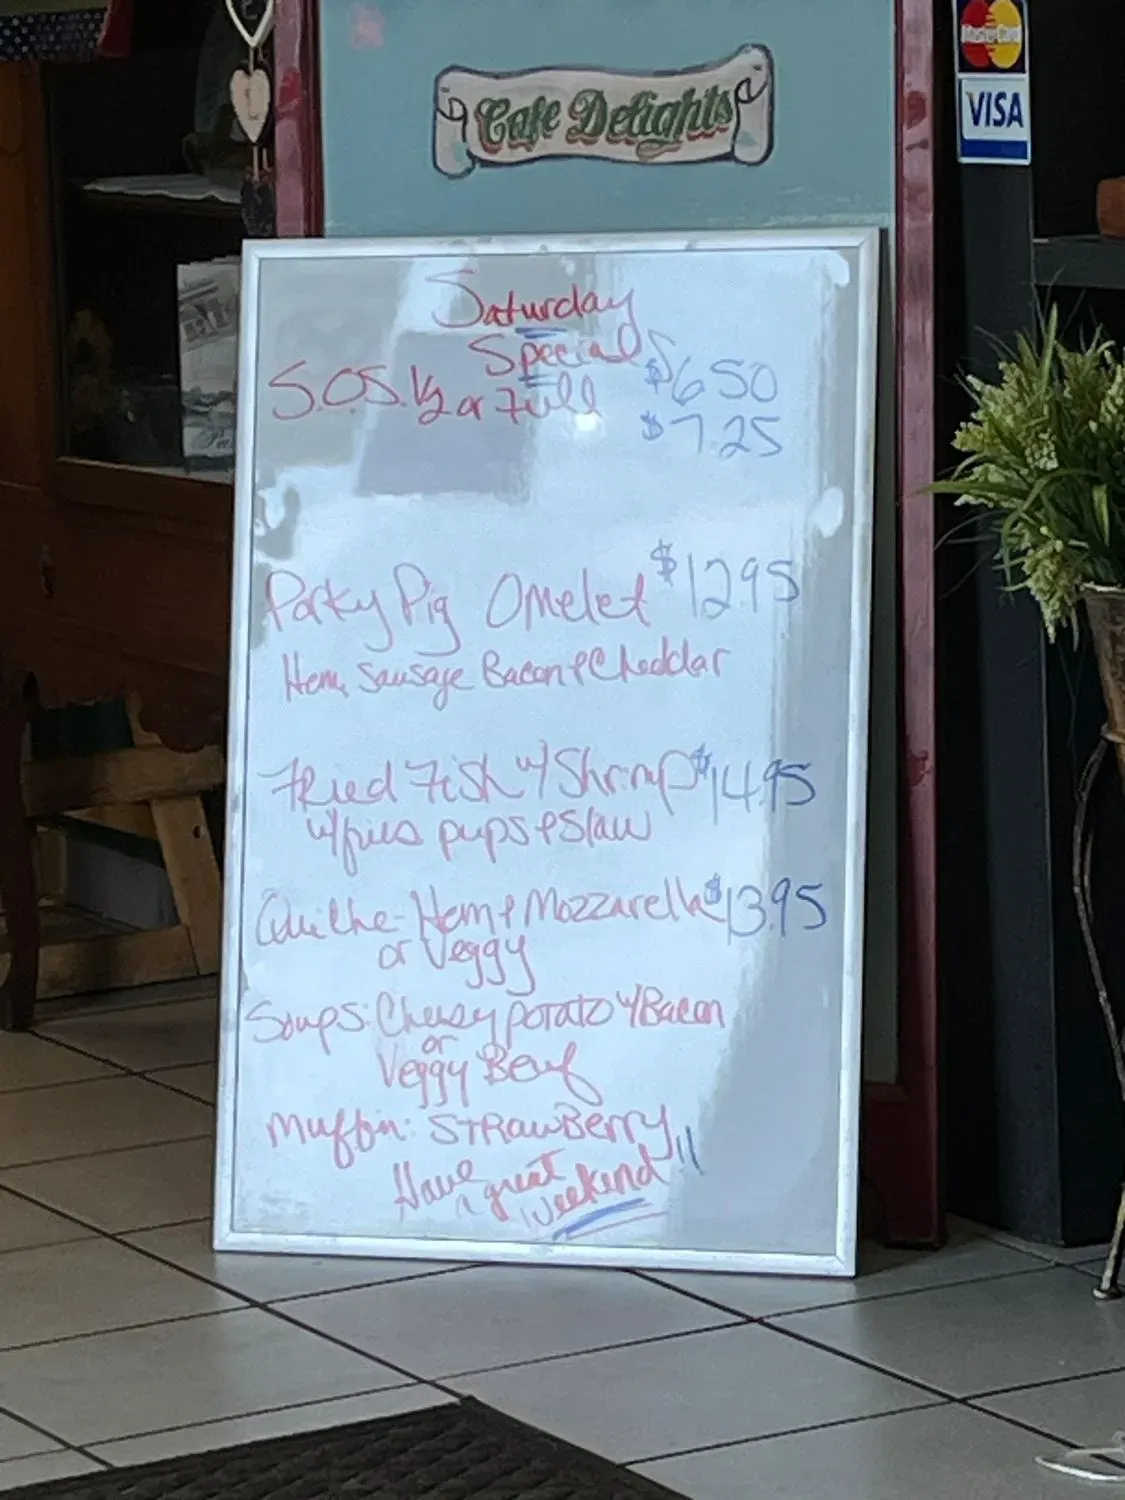 Cafe Delights
MasterCard
VISA
Saturday
Special
S.O.S. 1/2 or Full $6.50
$7.25
Porky Pig Omelet $12.95
Ham, Sausage Bacon & Cheddar
Fried Fish w/ Shrimp $14.95
w/fries pups & Slaw
Quiche - Ham & Mozzarella $13.95
or Veggy
Soups: Cheesy potato w/Bacon
or
Veggy Beef
Muffin: STRawBerry
Have a great
Weekend!!